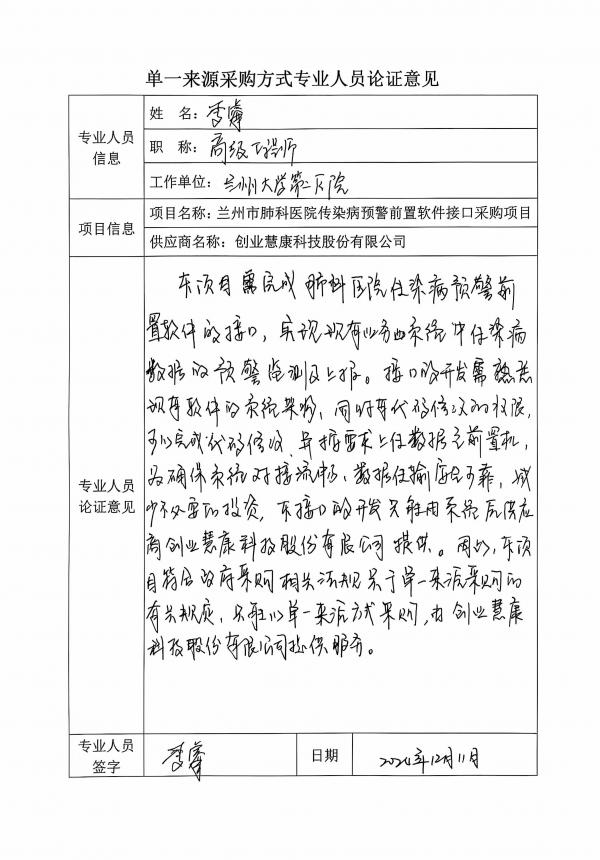 单一来源采购方式专业人员论证意见
专业人员
信息
姓 名：李睿
职 称：高级工程师
工作单位：兰州大学第二医院
项目信息
项目名称：兰州市肺科医院传染病预警前置软件接口采购项目
供应商名称：创业慧康科技股份有限公司
专业人员
论证意见
本项目需完成肺科医院传染病预警前
置软件的接口，实现现有业务系统中传染病
数据的预警监测及上报。接口的开发需熟悉
现有软件的系统架构，同时有代码修改的权限，
可以完成代码修改，并按要求上传数据至前置机，
为确保系统对接流畅、数据传输安全可靠，减
少不必要的投资，本接口的开发只能由系统原供应
商创业慧康科技股份有限公司提供。因此，本项
目符合政府采购相关法规关于单一来源采购的
有关规定，只能以单一来源方式采购，由创业慧康
科技股份有限公司提供服务。
专业人员
签字
李睿
日期
2024年12月11日